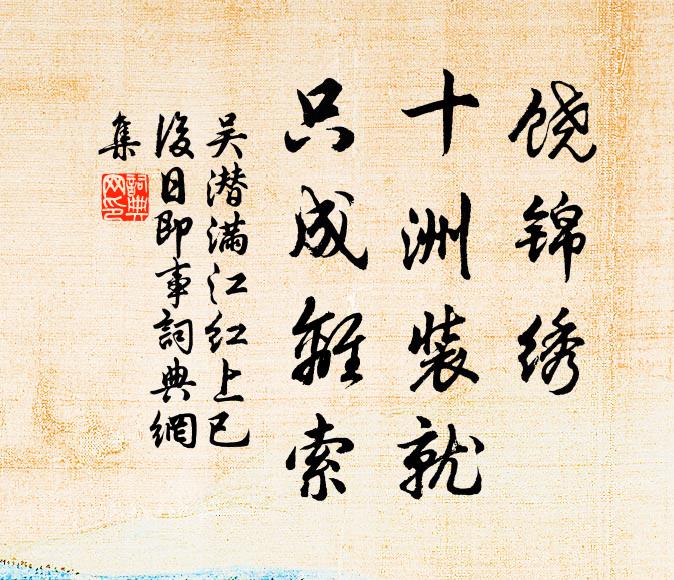 饶锦绣
十洲装就
只成離索
吴潜满江红上巳
後日即事詞典網
集
詞典
网印